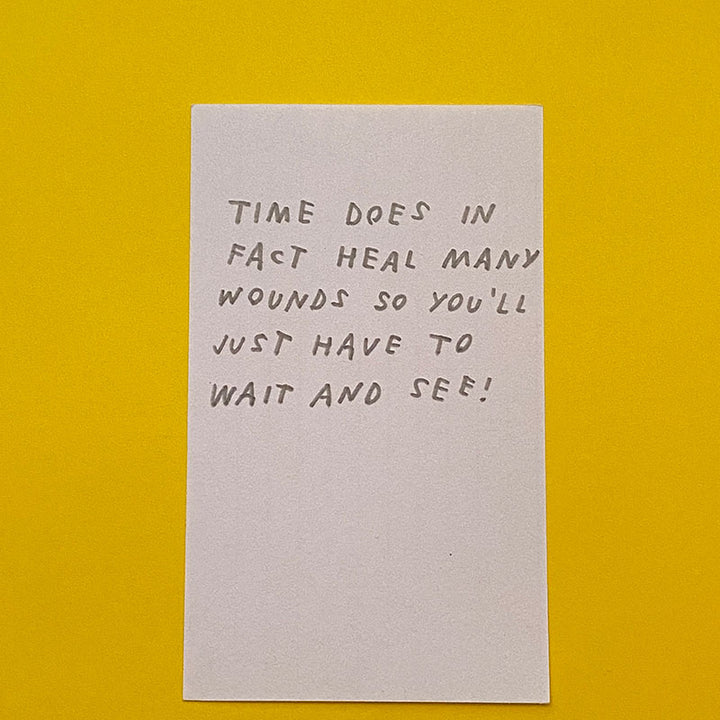 TIME DOES IN
FACT HEAL MANY
WOUNDS SO YOU'LL
JUST HAVE TO
WAIT AND SEE!